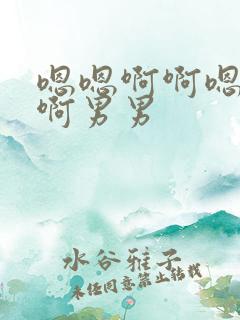 嗯嗯啊啊嗯
啊男男
水谷雅子
未经同意禁止转载